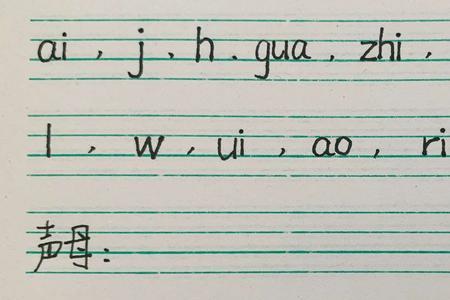 ai，j，h．gua，zhi，
l，w，ui，ao，ri
声母：